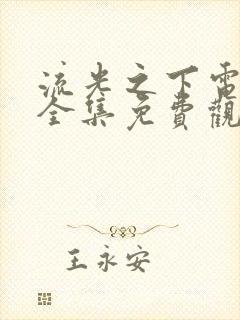 流光之下電
全集免費觀
王永安